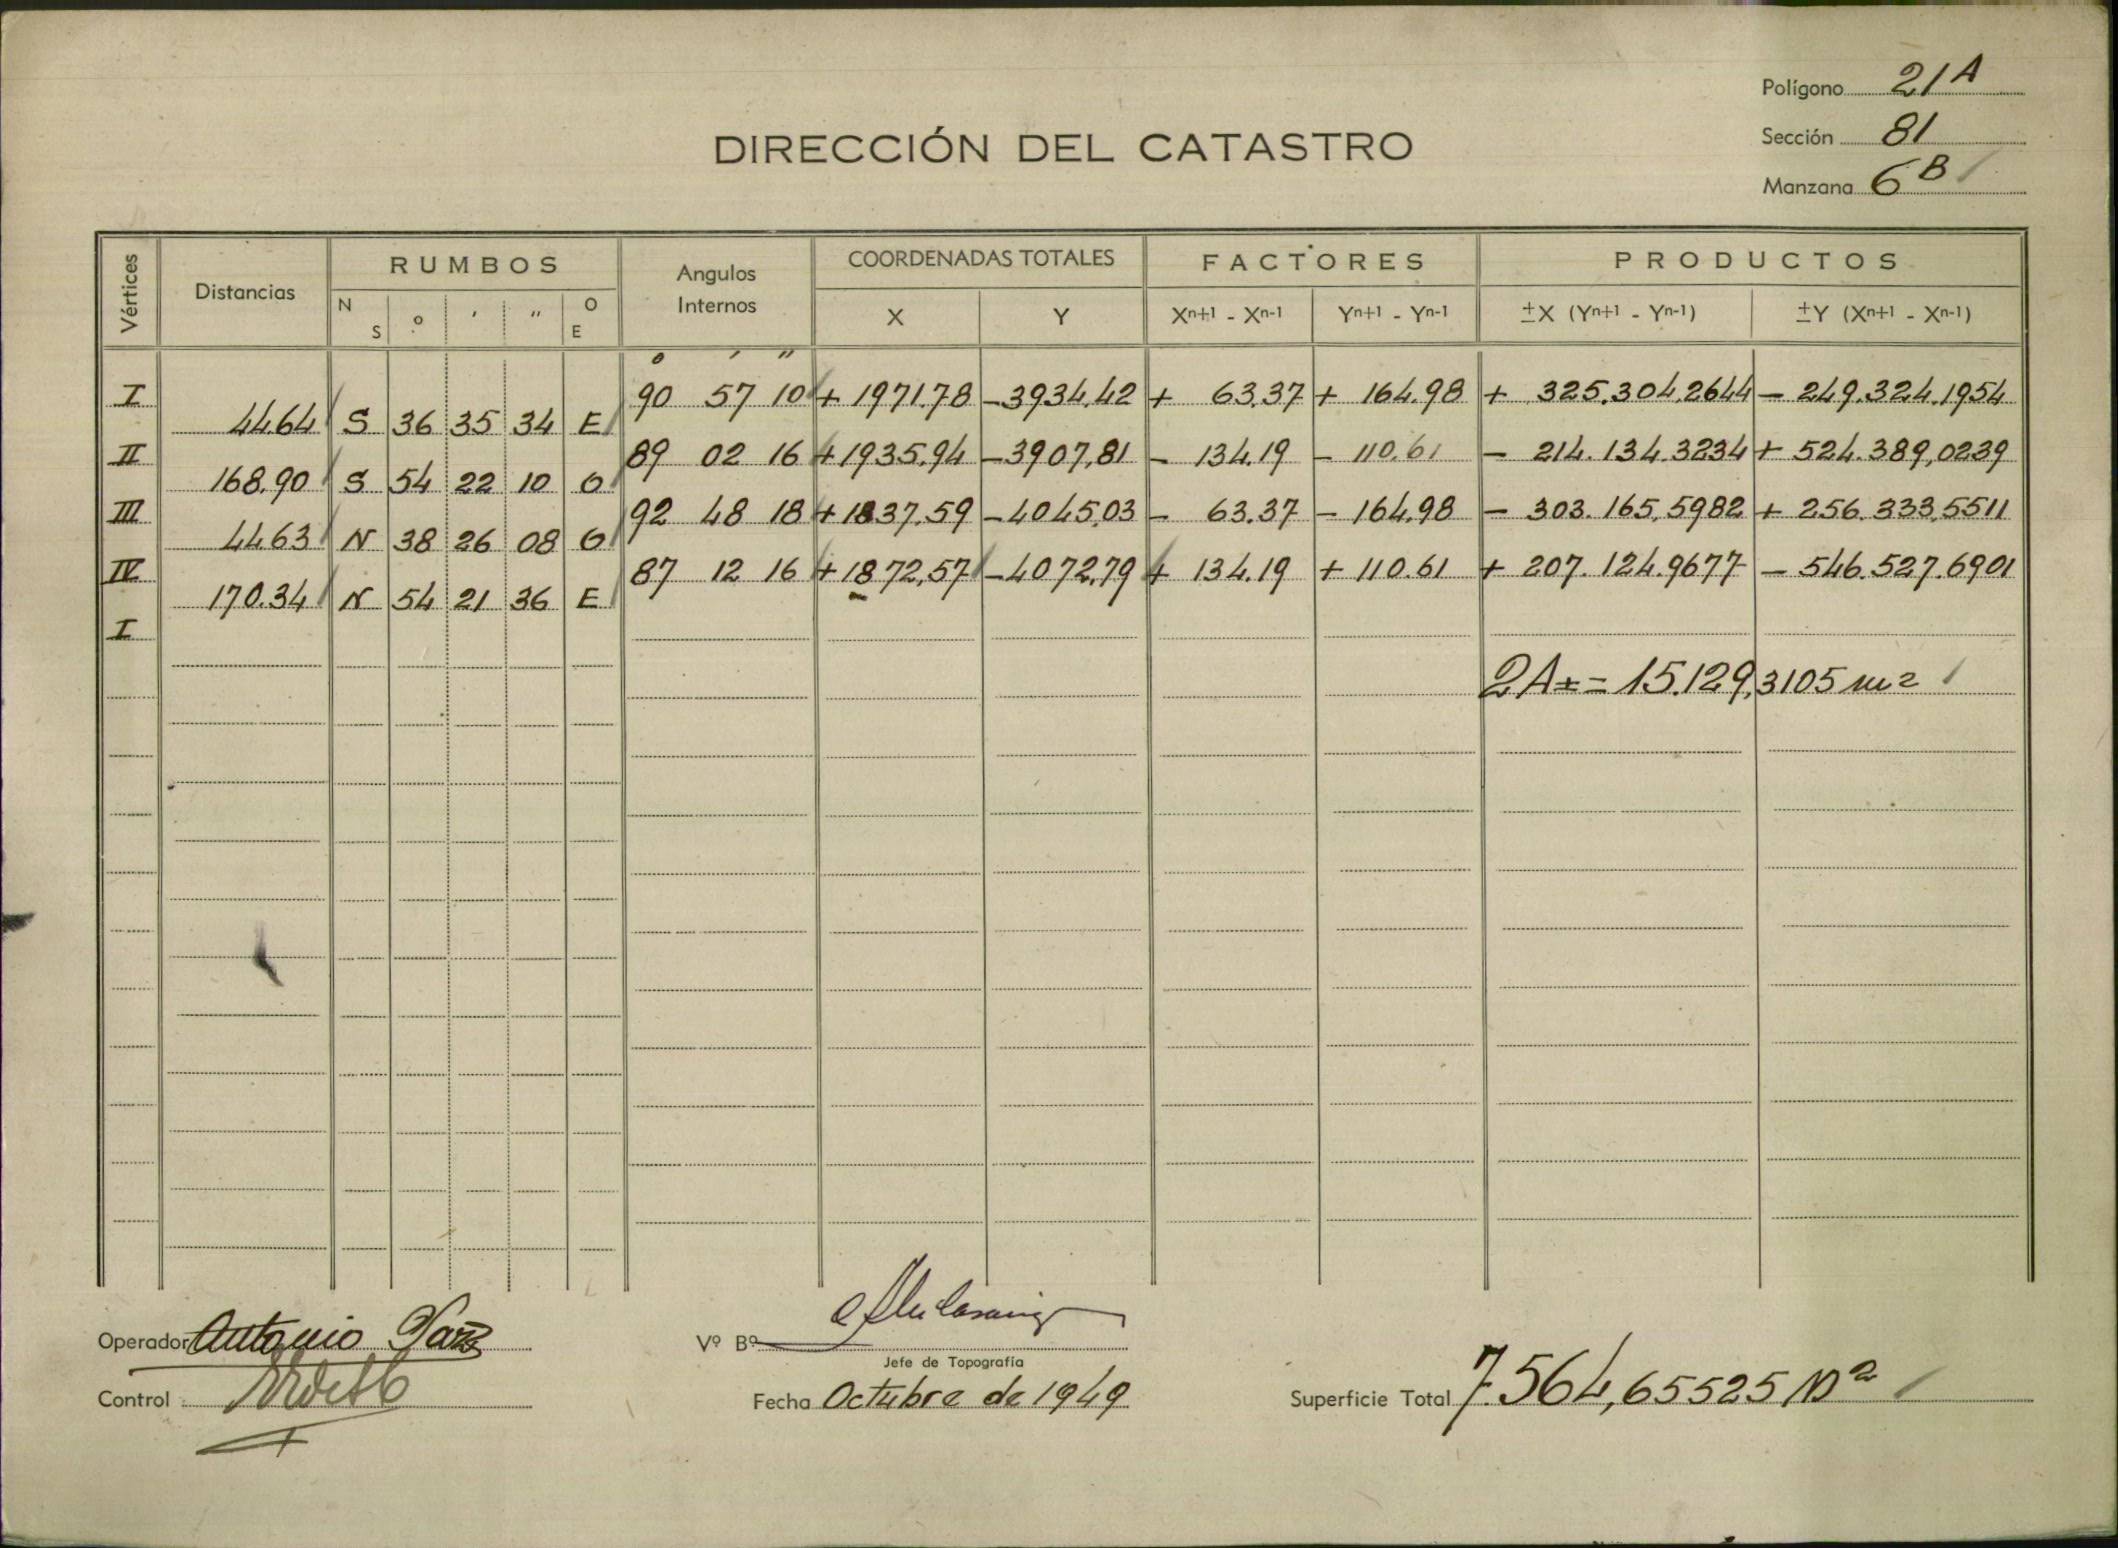 Polígono 21A
Sección 81
Manzana 6B
DIRECCIÓN DEL CATASTRO
Vértices Distancias RUMBOS Angulos Internos COORDENADAS TOTALES FACTORES PRODUCTOS
N S ° ' " O E X Y Xn+1 - Xn-1 Yn+1 - Yn-1 ±X (Yn+1 - Yn-1) ±Y (Xn+1 - Xn-1)
° ' "
I 90 57 10 + 1971.78 -3934.42 + 63.37 + 164.98 + 325.304.2644 - 249.324.1954
44.64 S 36 35 34 E
II 89 02 16 +1935.94 -3907,81 - 134.19 - 110.61 - 214.134.3234 + 524.389,0239
168.90 S 54 22 10 O
III 92 48 18 +1837.59 -4045.03 - 63.37 - 164.98 - 303.165.5982 + 256.333.5511
44.63 N 38 26 08 O
IV 87 12 16 +1872,57 -4072,79 + 134.19 + 110.61 + 207.124.9677 - 546.527.6901
170.34 N 54 21 36 E
I
2A± = 15.129,3105 m2
Operador Antonio
Vº Bº
Jefe de Topografía
Control
Fecha Octubre de 1949
Superficie Total 7.564,65525 M2